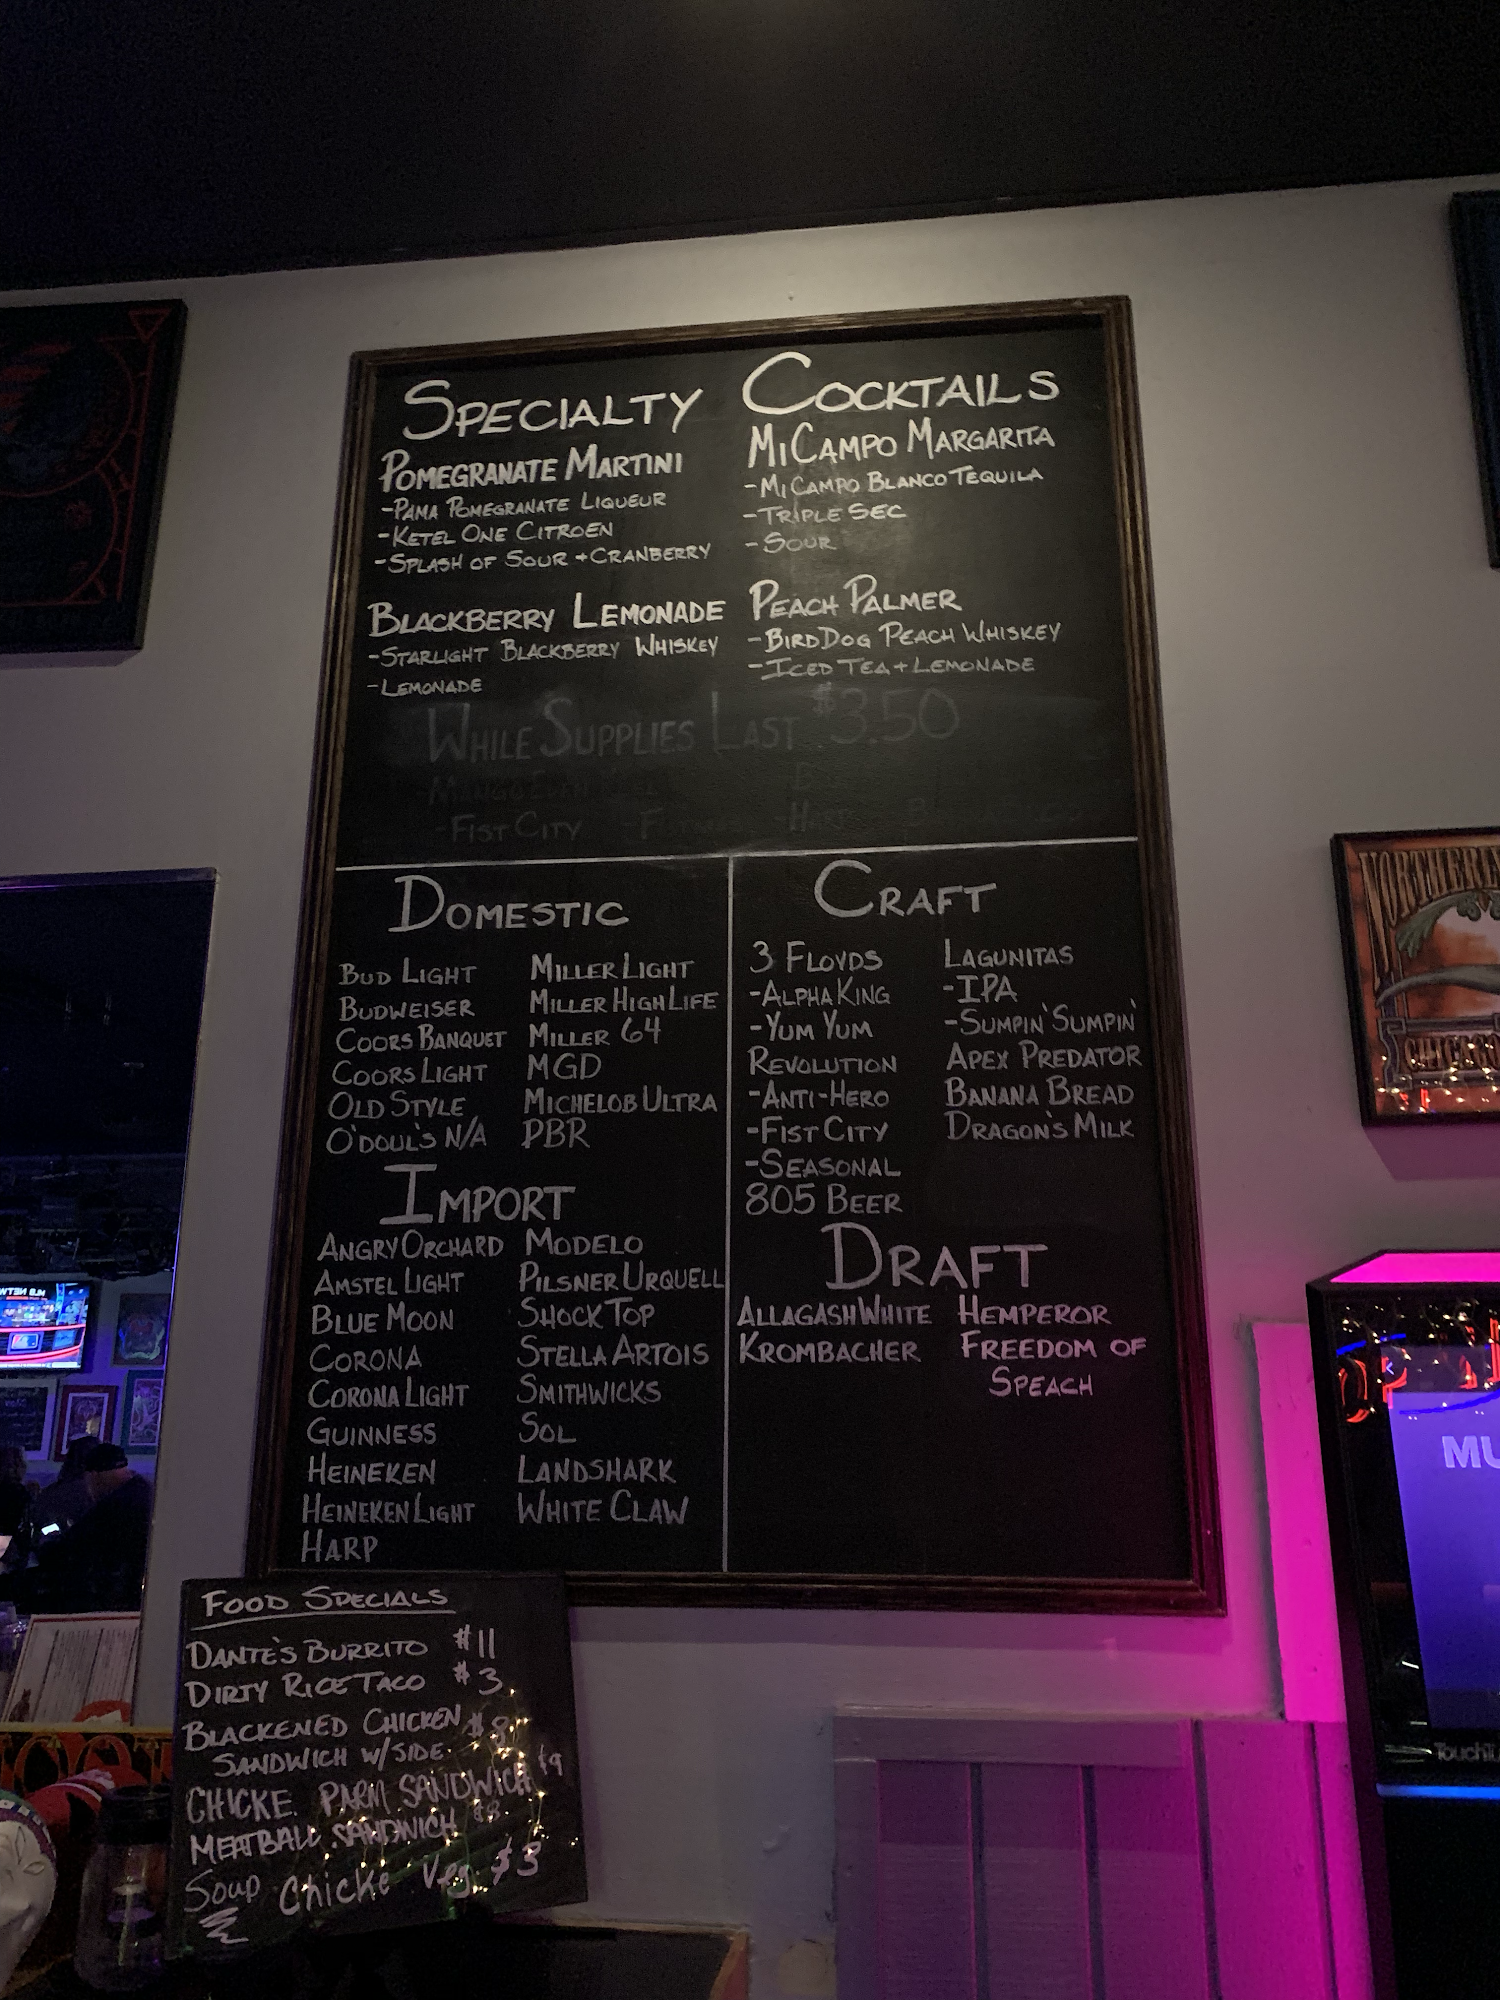 SPECIALTY COCKTAILS
POMEGRANATE MARTINI
-PAMA POMEGRANATE LIQUEUR
-KETEL ONE CITROEN
-SPLASH OF SOUR + CRANBERRY
MICAMPO MARGARITA
-MICAMPO BLANCO TEQUILA
-TRIPLE SEC
-SOUR
BLACKBERRY LEMONADE
-STARLIGHT BLACKBERRY WHISKEY
-LEMONADE
PEACH PALMER
-BIRD DOG PEACH WHISKEY
-ICED TEA + LEMONADE
WHILE SUPPLIES LAST $3.50
-FIST CITY
DOMESTIC
BUD LIGHT
BUDWEISER
COORS BANQUET
COORS LIGHT
OLD STYLE
O'DOUL'S N/A
MILLER LIGHT
MILLER HIGH LIFE
MILLER 64
MGD
MICHELOB ULTRA
PBR
IMPORT
ANGRY ORCHARD
AMSTEL LIGHT
BLUE MOON
CORONA
CORONA LIGHT
GUINNESS
HEINEKEN
HEINEKEN LIGHT
HARP
MODELO
PILSNER URQUELL
SHOCK TOP
STELLA ARTOIS
SMITHWICKS
SOL
LANDSHARK
WHITE CLAW
CRAFT
3 FLOYDS
-ALPHA KING
-YUM YUM
REVOLUTION
-ANTI-HERO
-FIST CITY
-SEASONAL
805 BEER
LAGUNITAS
-IPA
-SUMPIN' SUMPIN'
APEX PREDATOR
BANANA BREAD
DRAGON'S MILK
DRAFT
ALLAGASH WHITE
KROMBACHER
HEMPEROR
FREEDOM OF
SPEACH
FOOD SPECIALS
DANTE'S BURRITO $11
DIRTY RICE TACO $3
BLACKENED CHICKEN $8
SANDWICH W/SIDE
CHICKE. PARM SANDWICH $9
MEATBALL SANDWICH $8
Soup Chicke Veg. $3
NORTHERN
CHICAGO
MU
TouchTu